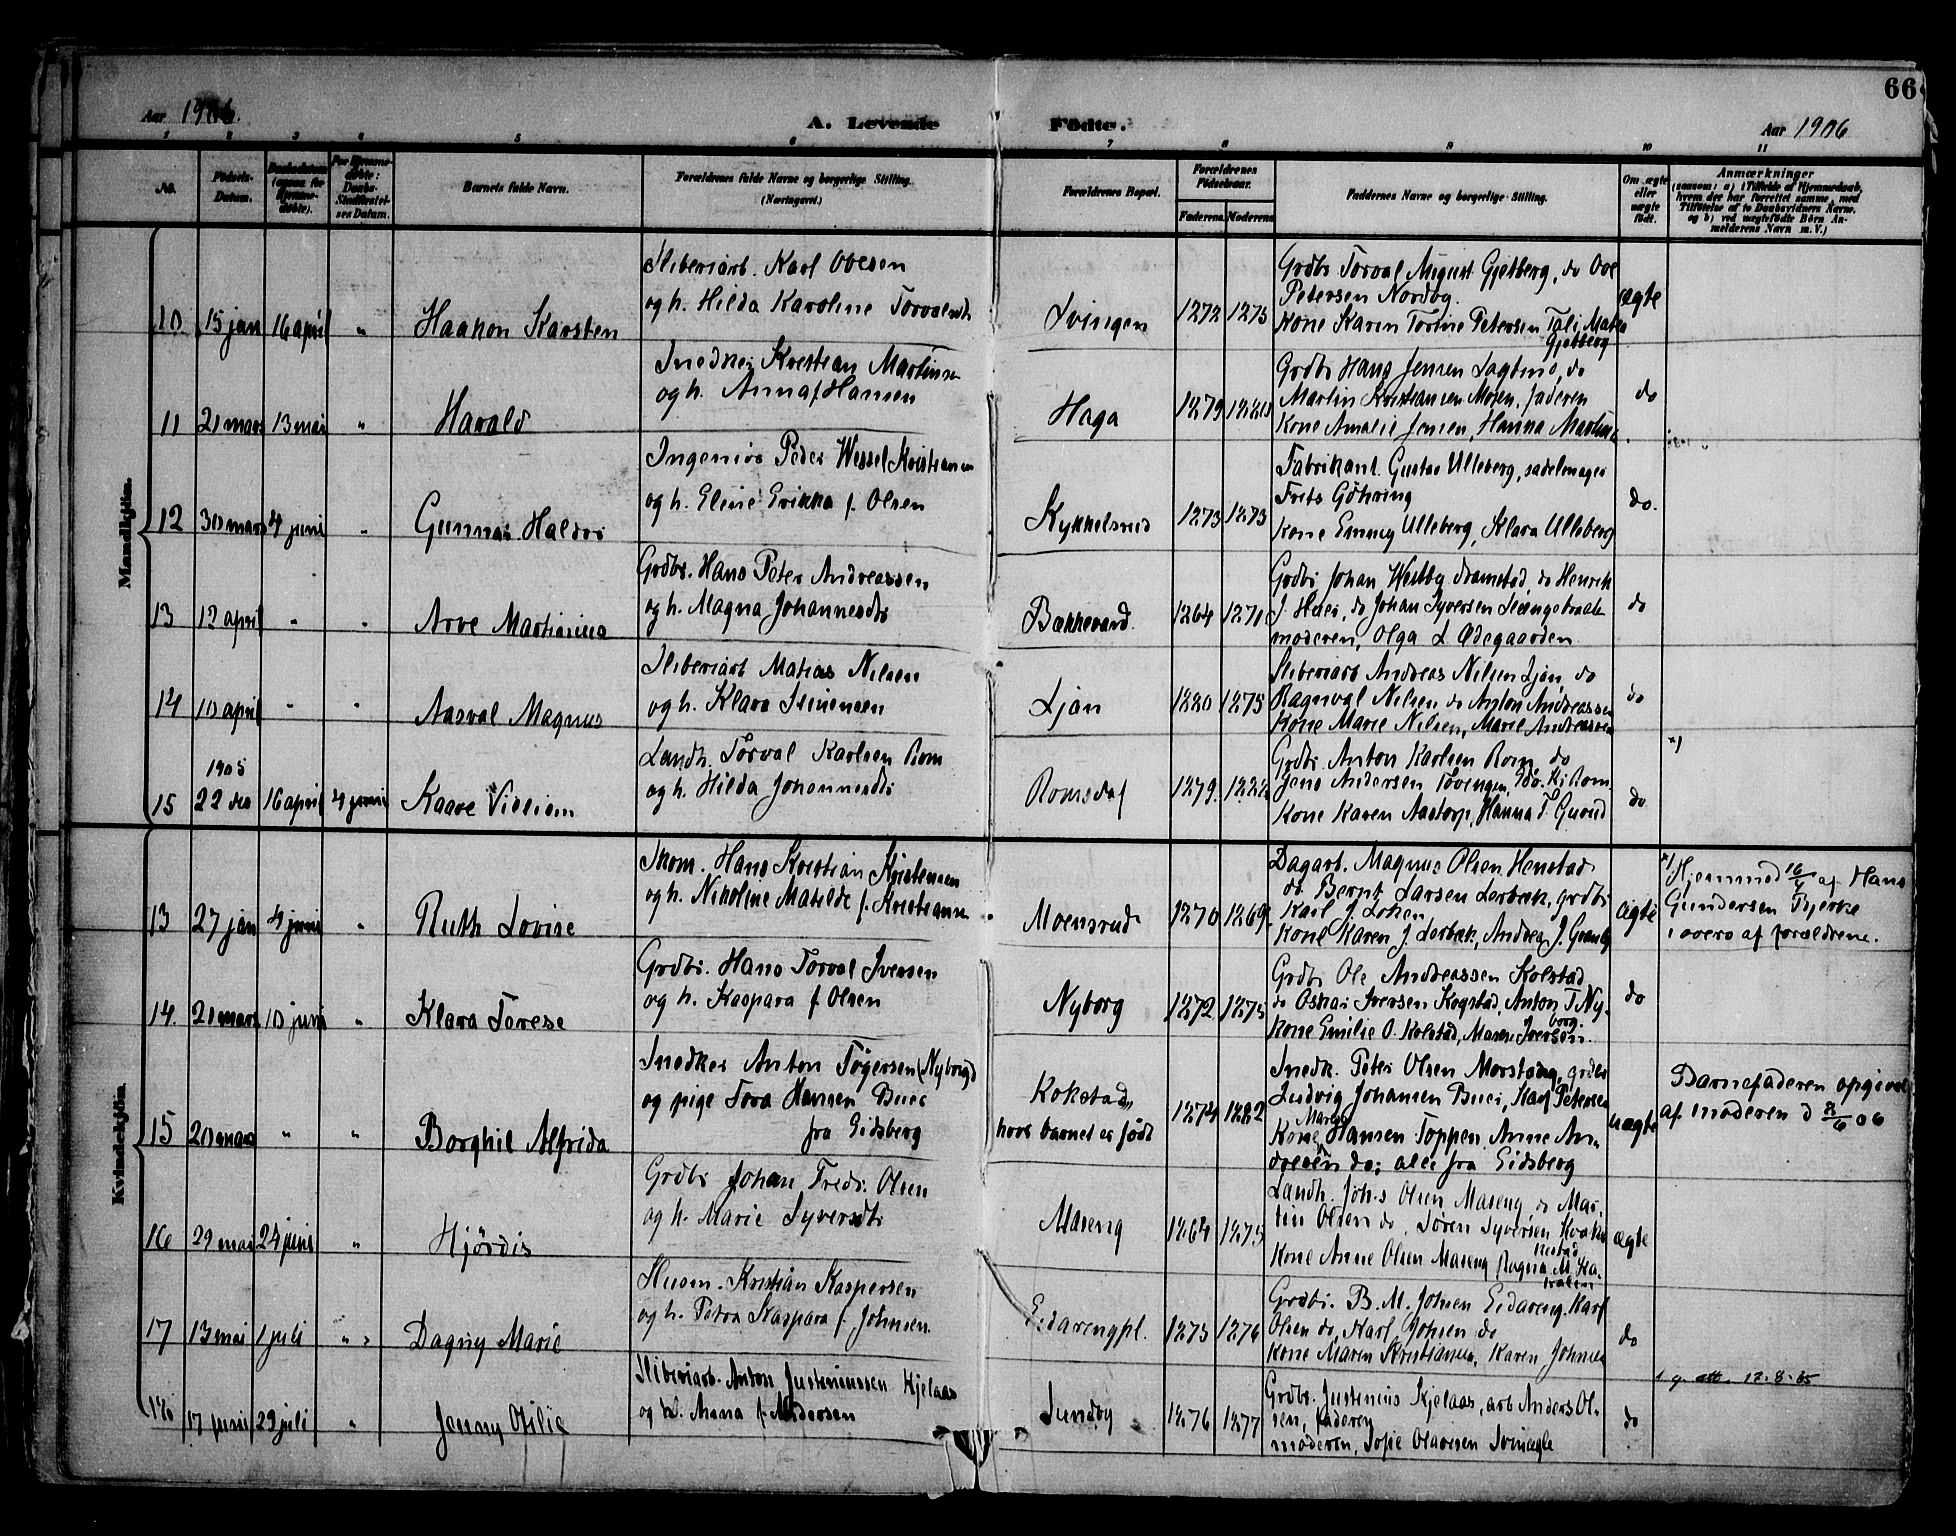 66
Aar 1906.
A. Levende Födte.
Aar 1906
1 2 3 4 5 6 7 8 9 10 11
No.
Födsels-
Datum.
Daabsdatum
(ogsaa for
Hjemme-
döbte).
For Hjemme-
döbte:
Daabs-
Stadfæstel-
ses Datum.
Barnets fulde Navn.
Forældrenes fulde Navne og borgerlige Stilling.
(Næringsvei.)
Forældrenes Bopæl.
Forældrenes
Födselsaar.
Faderens. Moderens.
Faddernes Navne og borgerlige Stilling.
Om ægte
eller
uægte
födt.
Anmærkninger
(saasom: a) i Tilfælde af Hjemmedaab,
hvem der har forrettet samme, med
Tilföielse af to Daabsvidners Navne,
og b) ved uægtefödte Börn An-
melderens Navn m. V.)
Mandkjön.
10 15 jan 16 april " Haakon Karsten
Sliberiarb. Karl Ovesen
og h. Hilda Karoline Torvalsdt
Svingen 1872 1873
Grdbr Torval August Gjetberg, do Ove
Petersen Nordby.
Kone Karen Torine Petersen
Gjetberg
ægte
11 21 mars 13 mai " Harald
Snedker Kristian Martinsen
og h. Anna f Hansen
Haga 1879
Grdbr Hans Jensen
Martin Kristiansen Mosen, faderen
Kone Amalie Jensen, Hanna Martinsen
do
12 30 mars 4 juni " Gunnar Haldor
Ingeniör Peder Wessel Kristiansen
og h. Eline Erikka f. Olsen
Kykkelsrud 1873 1873
Fabrikant Gustav Ulleberg, sadelmager
Frits Göhring
Kone Emmy Ulleberg, Klara Ulleberg
do.
13 12 april " " Arve Martinius
Grdbr. Hans Peter Andreassen
og h. Magna Johannesdtr
Bækkevard. 1864 1870
Grdbr Johan Westby do Henrik
J. Huer, do Johan Syversen
moderen, Olga L Ødegaarden
do
14 10 april " " Aasval Magnus
Sliberiarb Matias Nilsen
og h. Klara Simensen
Ljan 1880 1875
Sliberiarb Andreas Nilsen Ljan, do
Ragnval Nilsen, do Anton Andreassen
Kone Marie Nilsen, Marie Andreassen
do
1905
15 22 des 16 april 4 juni Kaare Villiam
Landh. Torval Karlsen Rom
og h. Hilda Johannesdtr
Romsdal 1879.
Grdbr. Anton Karlsen Rom, do
Jens Andersen Tovengen,
Kone Karen Aastorp, Hanna T. Guslund
do
x)
Kvindekjön.
13 27 jan 4 juni " Ruth Lovise
Skom. Hans Kristian Kristensen
og h. Nikoline Matilde f. Kristiansen
Moensrud 1870 1869
Dagarb. Magnus Olsen Henstad
do Bernt Larsen Lerbæk, grdbr
Karl J. Loken
Kone Karen J. Lerbæk, Andrea J. Granby
ægte
x) Hjemmed 16/4 af Hans
Gundersen Bjerke
i overv af forældrene.
14. 21 mars 10 juni " Klara Torese
Grdbr. Hans Torval Iversen
og h. Kaspara f Olsen
Nyborg 1872 1875
Grdbr Ole Andreassen Kolstad
do Oskar Iversen Kogstad, Anton T. Ny-
borg.
Kone Emilie O. Kolstad, Maren Iversen.
do
15 20 mars " " Borghil Alfrida
Snedker Anton Tögersen (Nyborg)
og pige Tora Hansen Buer
fra Eidsberg
Kokstad,
hvor barnet er födt 1874 1882
Snedk. Peter Olsen Morstong, grdbr
Ludvig Johansen Buer, Karl Petersen
Kone Maren Hansen Toppen, Anne An-
dresen do; alle fra Eidsberg
uægte
Barnefaderen opgivet
af moderen d 8/6 06
16 29 mar 24 juni " Hjördis
Grdbr Johan Fredr. Olsen
og h. Marie Syversdtr
Maseng 1864 1875
Landh. Johs Olsen Maseng, do Mar-
tin Olsen do, Sören Syversen
Kone Anne Olsen Maseng, Ragna M.
ægte
17 13 mai 1 juli " " Dagny Marie
Husm. Kristian Kaspersen
og h. Petra Kaspara f. Johnsen.
Eidarengpl. 1875 1876
Grdbr. B. M. Johsen Eidareng, Karl
Olsen do, Karl Johsen do
Kone Maren Kristiansen, Karen Johnsen
do
18 17 juni 29 juli " Jenny Otilie
Sliberiarb. Anton Justiniussen Kjelaas
og h. Anna f. Andersen
Sundby 1876 1877
Grdbr. Justinius Kjelaas, arb Anders Ol-
sen, faderen
moderen, Sofie Olavesen
do
12-8-85